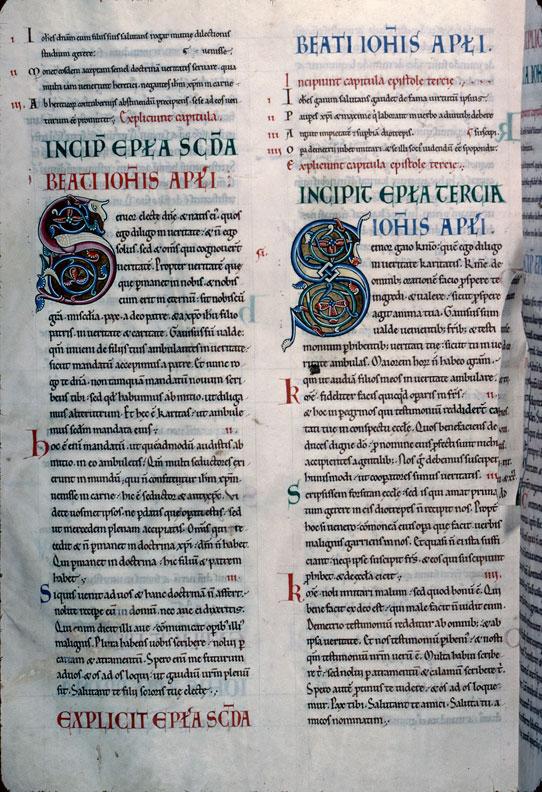 I ohes dnam cum filiis suis salutans rogat mutue dilectionis
studium gerere.
II M onet eosdem acceptam semel doctrinam veritatis servare. quia
multi iam venerunt heretici. negantes ihm xpm in carne venisse.
III A b hereticorum
abstinendum precepit.
Expliciunt capitula.
INCIP EPLA SCDA
BEATI IOHIS APLI.
Senior electe dne & natis ei. quos
ego diligo in veritate. & n ego
solus. sed & oms qui cognovert
veritate. Propter veritate que
que pmanet in nobis. & nobis
cum erit in eternu. Sit nobiscu
gra. misdia. pax. a deo patre. & a xpo ihu filio
patris. in veritate & caritate. Gavisus su valde:
qm inveni de filiis tuis ambulantes in veritate.
sicut mandatu accepimus a patre. Et nunc ro
go te dna. non tanqua mandatu novum scri
bens tibi. sed qd habuimus ab initio. ut diliga
mus alterutrum. Et hec e karitas. ut ambule
mus scdm mandata eius.
II
hoc e eni mandatu. ut queadmodu audistis ab
initio. in eo ambuletis. Qm multi seductores exi
erunt in mundu. qui n confitentur ihm xpm
venisse in carne. hic e seductor & antixpc. Vi
dete vosmet ipsos. ne pdatis que opati estis. sed
ut mercedem plenam accipiatis. Omnis qui re
cedit & n pmanet in doctrina xpi. dm n habet.
Qui pmanet in doctrina. hic filiu & patrem
habet.
III
Si quis venit ad vos & hanc doctrina n affert.
nolite recipe eu in domu. nec ave ei dixeritis.
Qui eni dicit illi ave. comunicat opib illi
malignis. Plura habens vobis scribere. nolui p
cartam & atramentu. Spero eni me futurum
ad vos. & os ad os loqui. ut gaudiu vrm plenu
sit. Salutant te filii sororis tue electe.
EXPLICIT EPLA SCDA
BEATI IOHIS APLI.
Incipiunt capitula epistole tercie.
I I ohes gaium salutans gaudet de fama virtutum ipsius.
II P auperes xpi & maxime qui laborant in verbo adiutu debere suscipi.
III A rguit impietate & supbia diotrepis.
IIII
Expliciunt capitula epistole tercie.
INCIPIT EPLA TERCIA
IOHIS APLI.
Senior gaio kmo. que ego diligo
in veritate karitatis. Kme. de
omnib. oratione facio pspere te
ingredi & valere. sicut pspere
agit anima tua. Gavisus sum
valde venientib frib. & testi
monium phibentib. veritati tue. sicut tu in ve
ritate ambulas. Maiorem hor n habeo gram.
qm ut audia filios meos in veritate ambulare.
II
Kme. fideliter facis quicqd opans in frs.
& hoc in pegrinos qui testimoniu reddidert cari
tati tue in conspectu eccle. Quos benefaciens de
duces digne do. p nomine eius pfecti sunt nichil
accipientes a gentilib. Nos g debemus suscipe
hujusmodi. ut cooperatores simus veritatis.
III
Scripsissem forsitan eccle. sed is qui amat primatu
gerere in eis diotrepes n recipit nos. Propt
hoc si venero. comonea eius opa que facit verbis
malignis garriens in nos. Et quasi n ei ista suffi
ciant. nec ipse suscipit frs. & eos qui suscipiunt
phibet. & de eccla eicit.
IIII
Kme. noli imitari malum. sed quod bonu e. Qui
bene facit ex deo est. qui male facit n vidit dm.
Demetrio testimoniu redditur ab omnib. & ab
ipsa veritate. Et nos testimoniu phibem. & nosti
qm testimoniu nrm veru e. Multa habui scribe
re t. sed nolui p atramentu & calamu scribere t.
Spero aute ptinus te videre. & os ad os loque
mur. Pax tibi. Salutant te amici. Saluta tu a
micos nominatim.